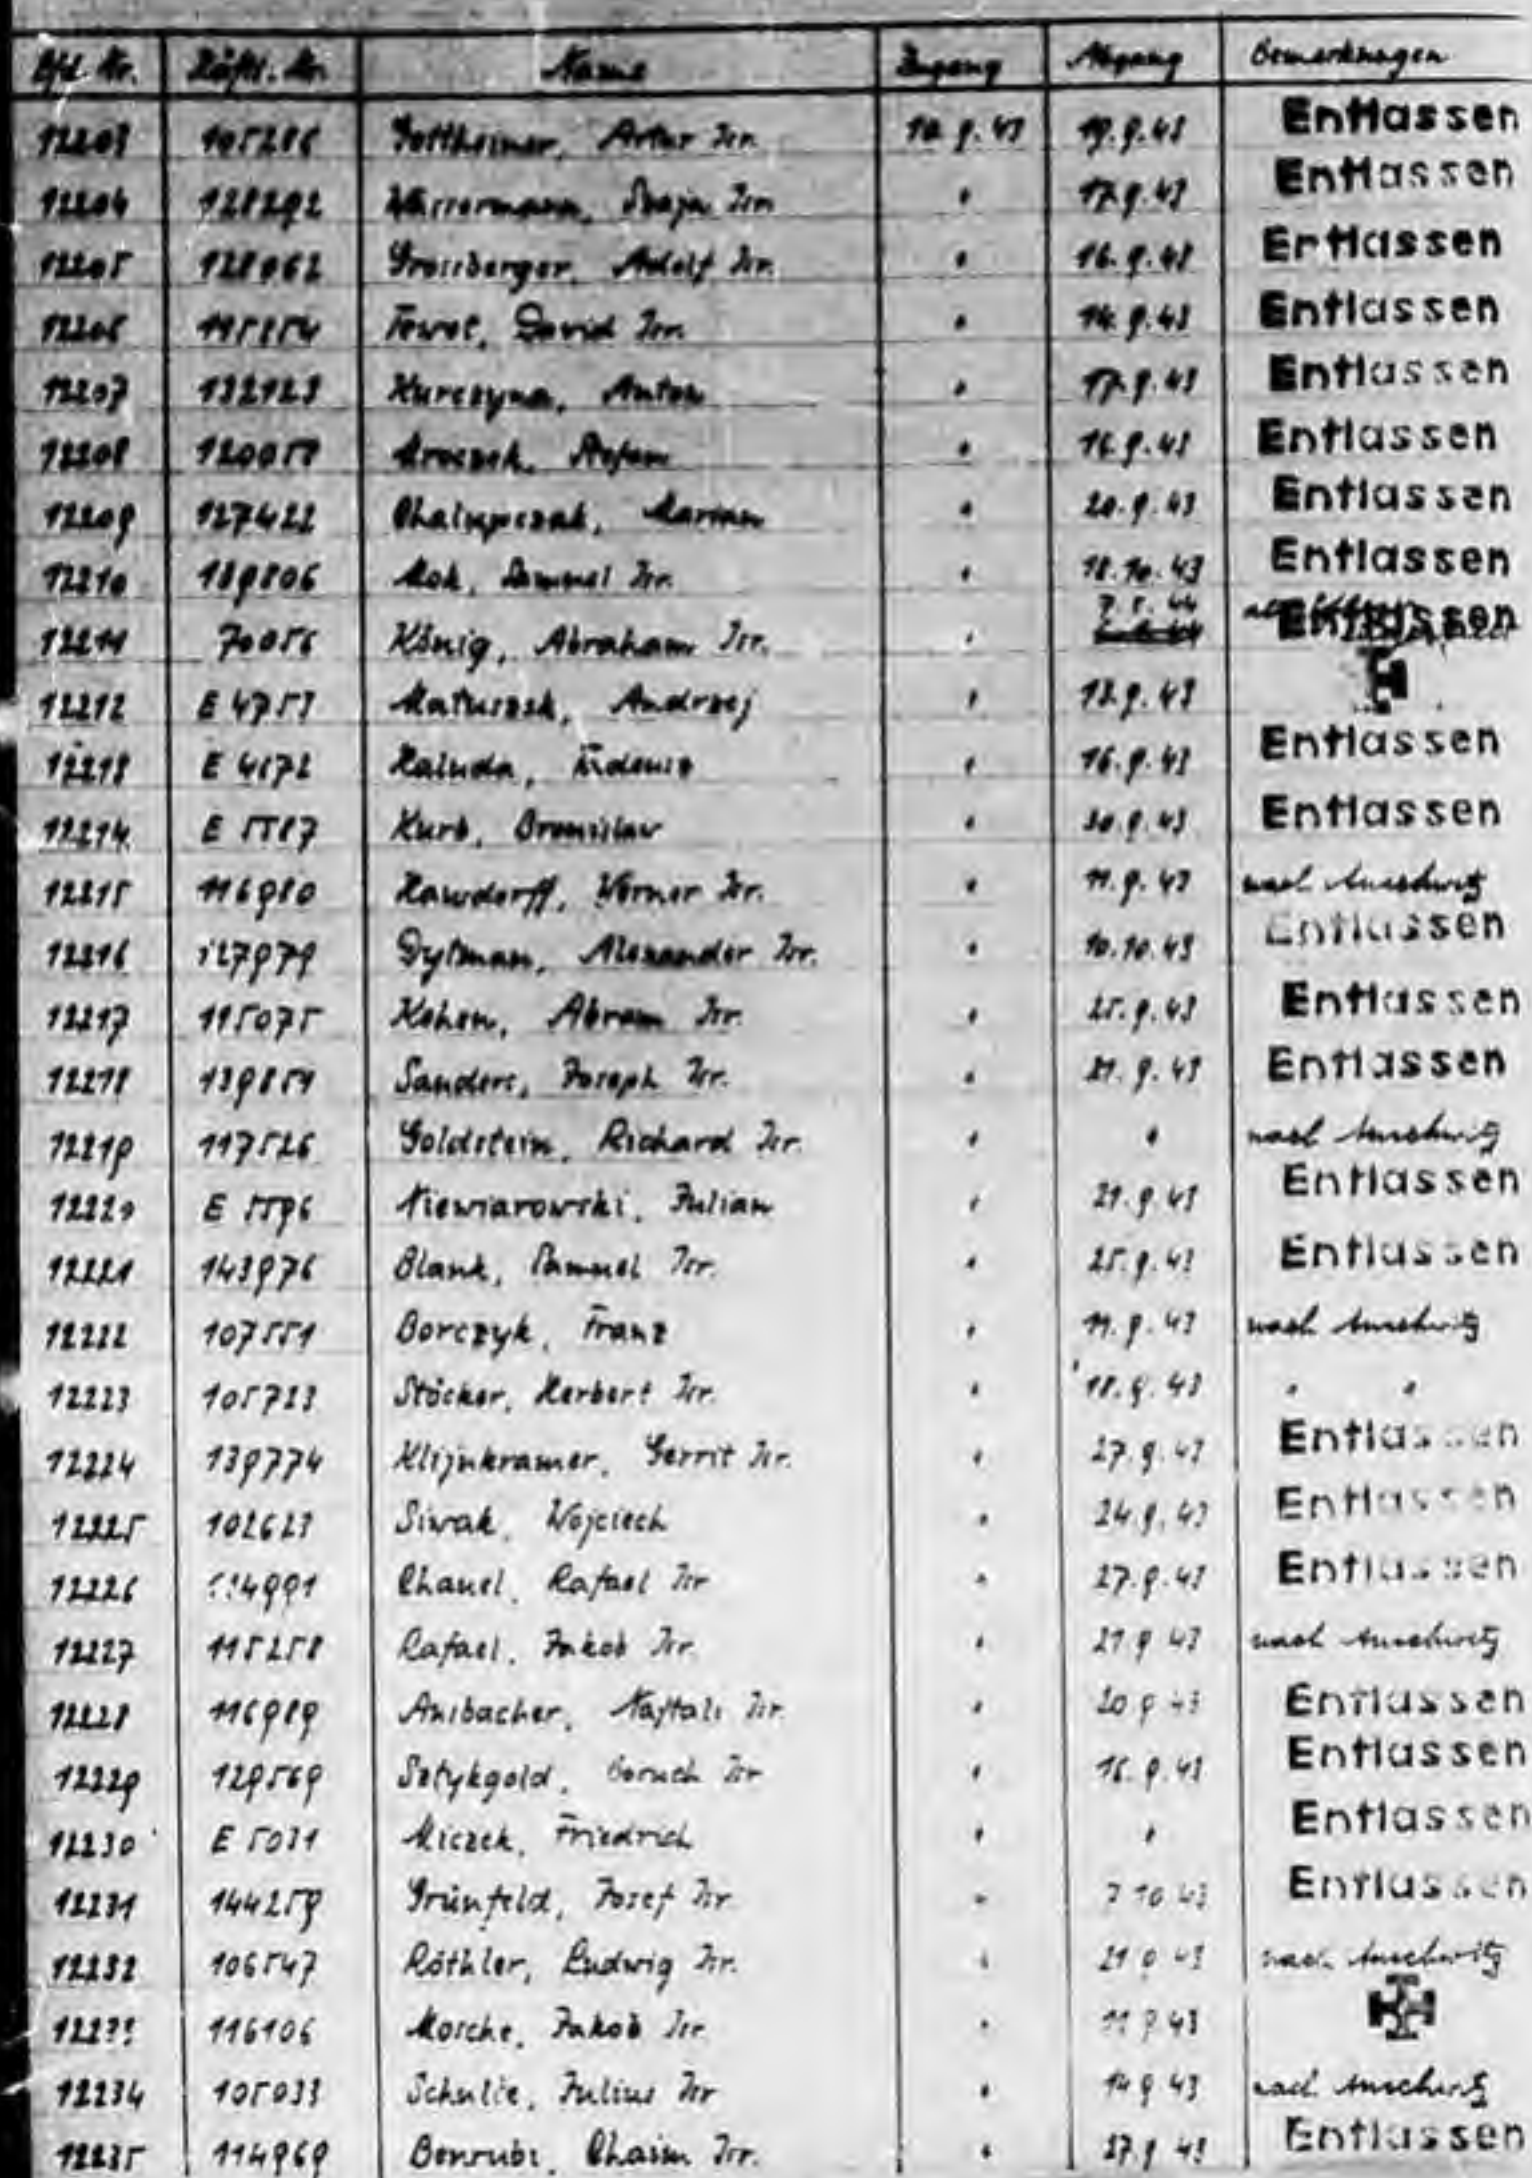 Lfd. Nr. Häftl. Nr. Name Zugang Abgang Bemerkungen
12203 105286 Gottheimer, Artur Isr. 10.9.43 19.9.43 Entlassen
12204 128292 Isr. " 17.9.43 Entlassen
12205 128062 Grossberger, Adolf Isr. " 16.9.43 Entlassen
12206 David Isr. " 14.9.43 Entlassen
12207 132123 Kurczyna, Anton " 17.9.43 Entlassen
12208 Mroczek, Stefan " 16.9.43 Entlassen
12209 127422 Chalupczak, Marian " 20.9.43 Entlassen
12210 139806 Mok, Sammel Isr. " 18.10.43 Entlassen
12211 70056 König, Abraham Isr. " 7.5.44 Entlassen
12212 E 4753 Matuszek, Andrzej " 13.9.43
12213 Haluda, " 16.9.43 Entlassen
12214 E 5587 Kurb, Bronislaw " 30.9.43 Entlassen
12215 116980 Werner Isr. " 11.9.43 nach Auschwitz
12216 127979 Dytman, Alexander Isr. " 10.10.43 Entlassen
12217 115075 Kohen, Abram Isr. " 25.9.43 Entlassen
12218 139851 Sanders, Joseph Isr. " 21.9.43 Entlassen
12219 117526 Goldstein, Richard Isr. " " nach Auschwitz
12220 E 5596 Niewiarowski, Julian " 21.9.43 Entlassen
12221 143976 Blank, Sammel Isr. " 25.9.43 Entlassen
12222 107551 Borczyk, Franz " 11.9.43 nach Auschwitz
12223 105723 Stöcker, Herbert Isr. " 18.9.43 " "
12224 139774 Klijnkramer, Gerrit Isr. " 27.9.43 Entlassen
12225 102623 Siwak, Wojciech " 24.9.43 Entlassen
12226 Rafael Isr " 27.9.43 Entlassen
12227 115258 Rafael, Jakob Isr. " 21 9 43 nach Auschwitz
12228 116989 Ansbacher, Naftali Isr. " 20 9 43 Entlassen
12229 129569 Sztykgold, Boruch Isr " 16.9.43 Entlassen
12230 E 5031 Miczek, Friedrich " " Entlassen
12231 144259 Grünfeld, Josef Isr. " 7 10 43 Entlassen
12232 106547 Röthler, Ludwig Isr. " 21 9 43 nach Auschwitz
12233 116106 Mosche, Jakob Isr. " 11 9 43
12234 105033 Julius Isr " 14 9 43 nach Auschwitz
12235 114969 Benrubi, Chaim Isr. " 27.9 43 Entlassen